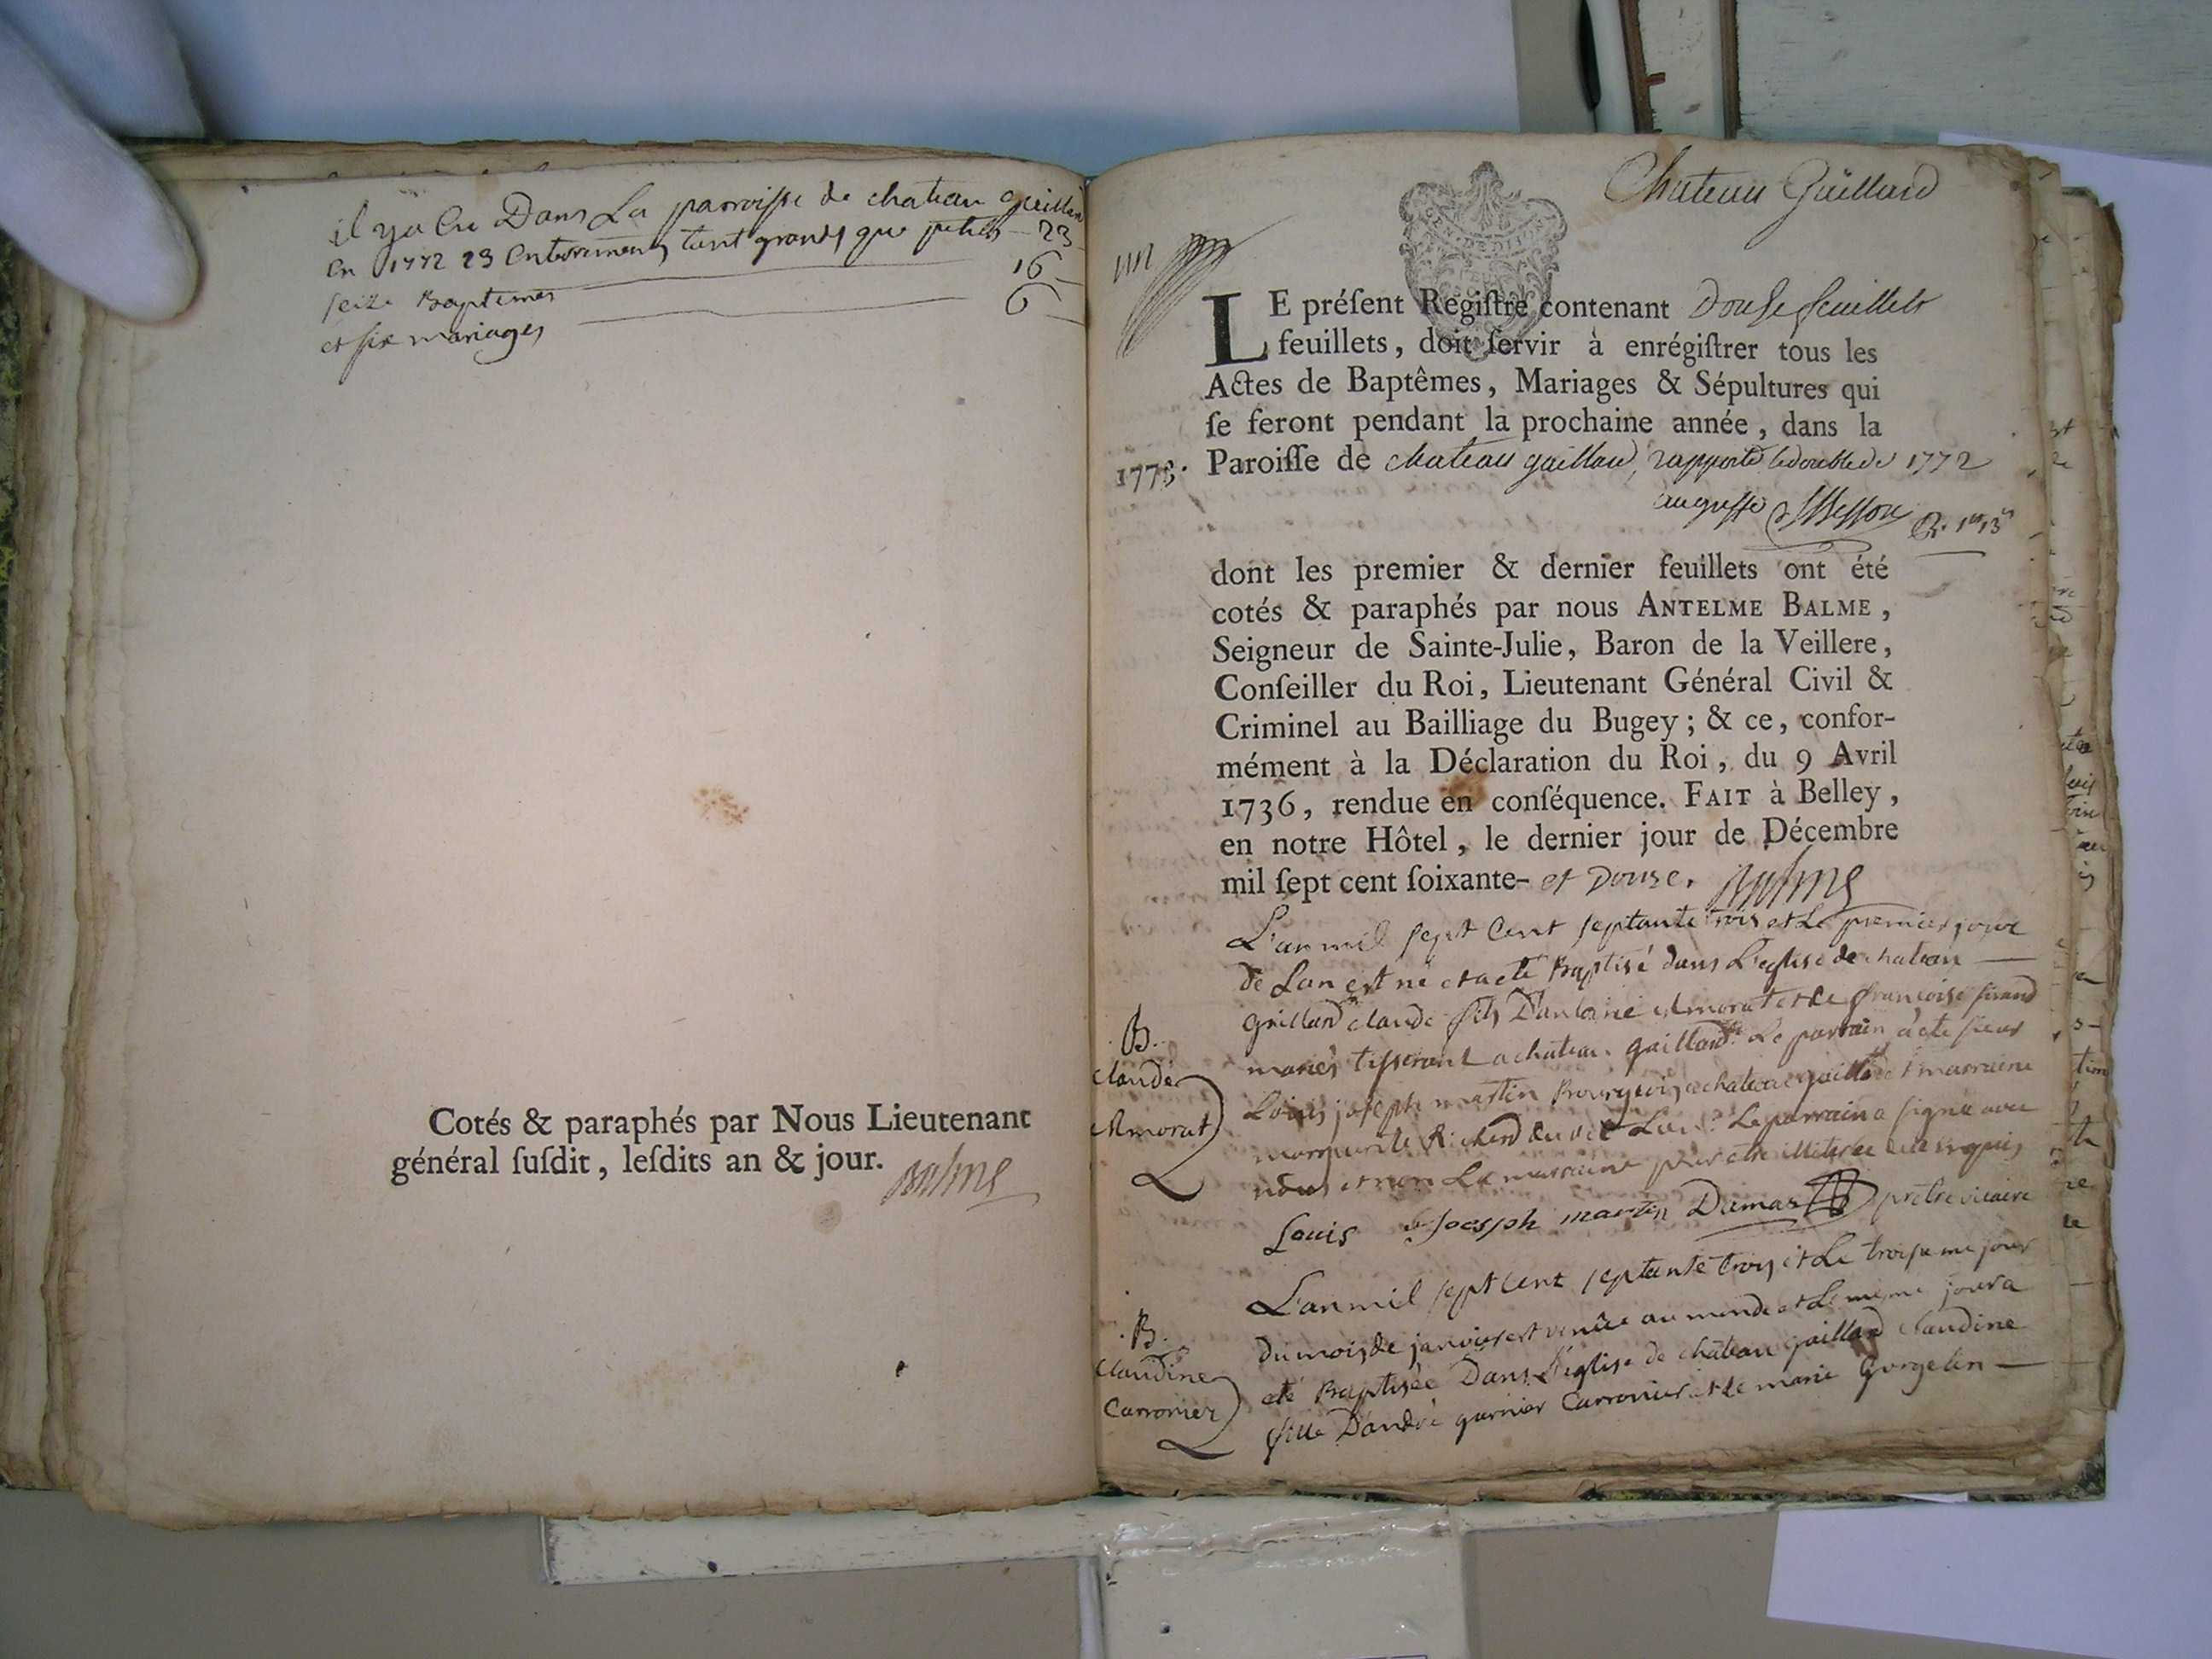 il y a Eu Dans La parroisse de chateau gaillard
En 1772 23 Enterrements tant grands que petits — 23
seize Baptemes — 16
et six mariages — 6
Cotés & paraphés par Nous Lieutenant
général ſuſdit, leſdits an & jour. Balme
Chateau Gaillard
LE préſent Regiſtre contenant Douse feuillets
feuillets, doit ſervir à enrégiſtrer tous les
Actes de Baptêmes, Mariages & Sépultures qui
ſe feront pendant la prochaine année, dans la
1773. Paroiſſe de chateau gaillard, rapporté le double de 1772
au greffe
dont les premier & dernier feuillets ont été
cotés & paraphés par nous ANTELME BALME,
Seigneur de Sainte-Julie, Baron de la Veillere,
Conſeiller du Roi, Lieutenant Général Civil &
Criminel au Bailliage du Bugey; & ce, confor-
mément à la Déclaration du Roi, du 9 Avril
1736, rendue en conſéquence. FAIT à Belley,
en notre Hôtel, le dernier jour de Décembre
mil ſept cent ſoixante- et Douse. Balme
L'an mil sept Cent septante trois et Le premier jour
de Lan est né et a eté Baptisé dans L'eglise de chateau
B.
Claude
Amorat
gaillard claude fils D'antoine Amorat et de françoise
mariés tisserant a chateau gaillard Le parrain a eté sieur
Louis joseph martin Bourgeois a chateau gaillard et marraine
Le parrain a signé avec
nous et non La marraine pour etre illiterée
Louis Joesph martin Dumas prêtre vicaire
B.
Claudine
Carronier
L'an mil sept Cent septante trois et Le troisieme jour
du mois de janvier est venüe au monde et Le meme jour a
eté Baptisée Dans L'eglise de chateau gaillard Claudine
fille D'andré garnier Carronier et de marie Gorgelin